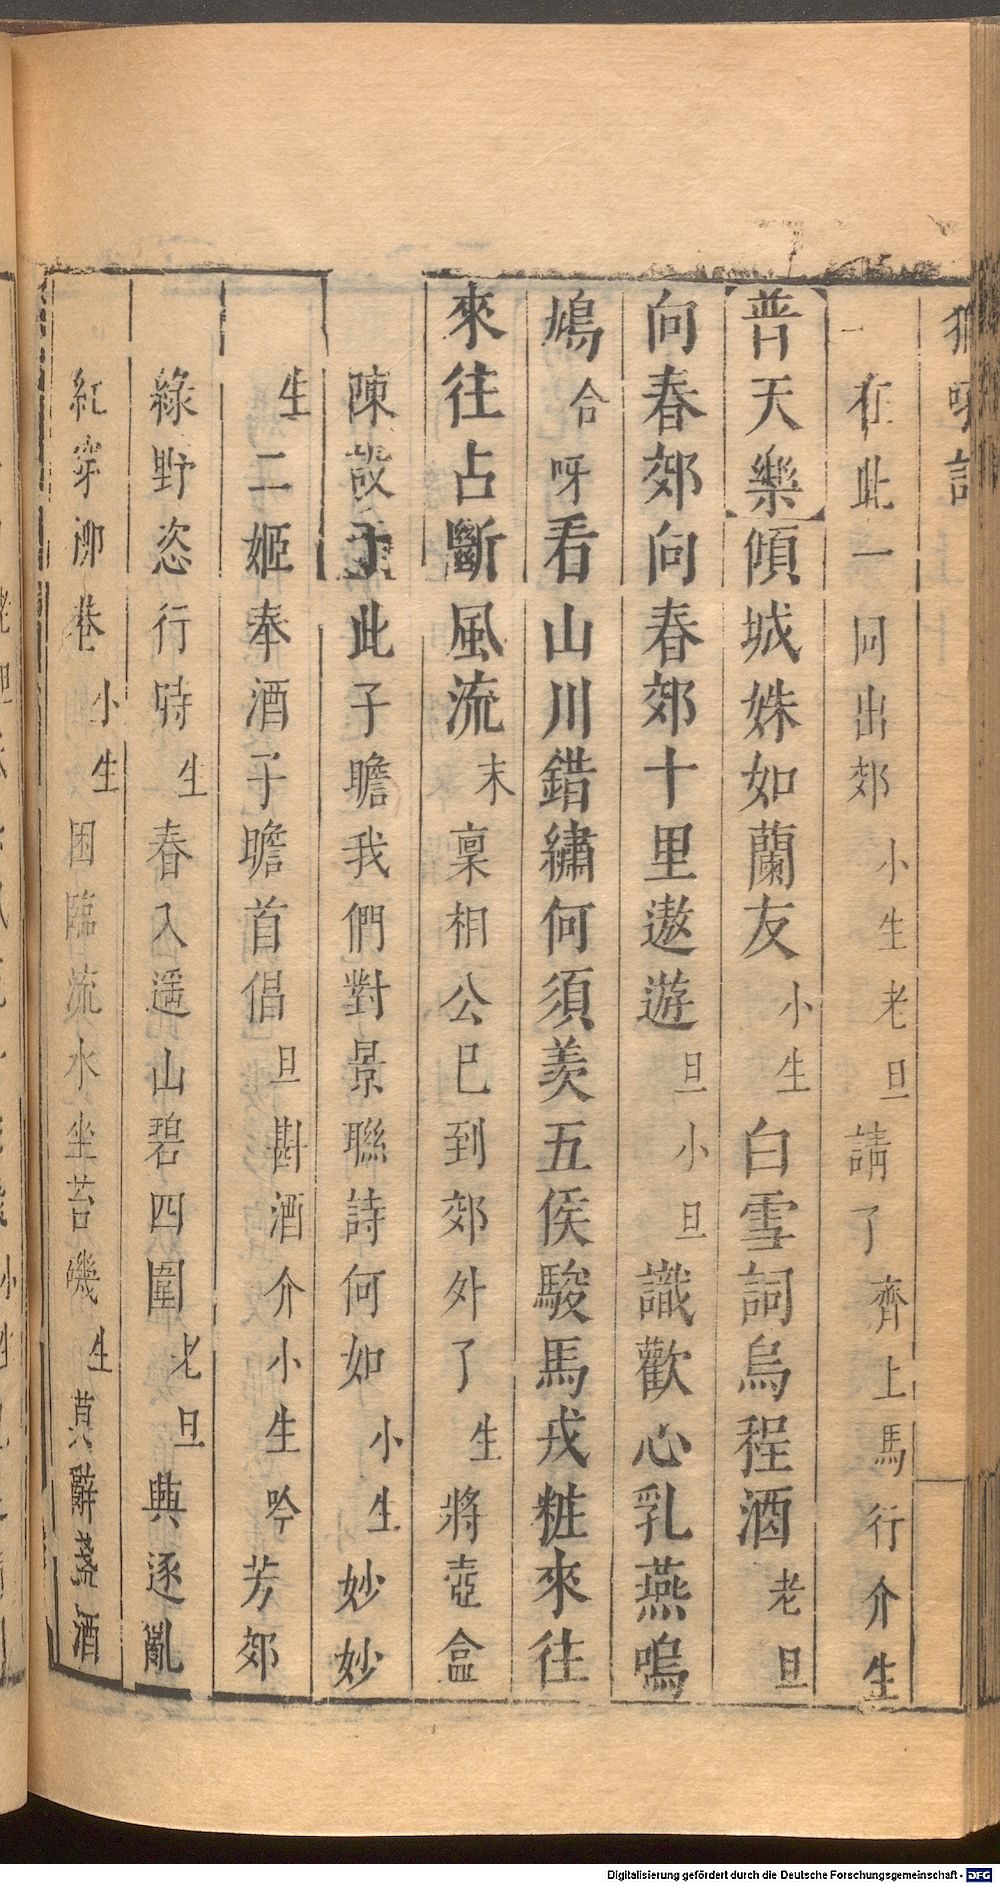 獅吼記
在此一同出郊小生老旦請了齊上馬行介生
普天樂傾城姝如蘭友小生白雪詞烏程酒老旦
向春郊向春郊十里遨遊旦小旦識歡心乳燕鳴
鳩合呀看山川錯繡何須羨五侯駿馬戎粧來往
來往占斷風流末稟相公已到郊外了生將壺盒
陳設于此子瞻我們對景聯詩何如小生妙妙
生二姬奉酒子瞻首倡旦斟酒介小生吟芳郊
綠野恣行時生春入遥山碧四圍老旦興逐亂
紅穿柳巷小生困臨流水坐苔磯生莫辭盞酒
Digitalisierung gefördert durch die Deutsche Forschungsgemeinschaft - DFG